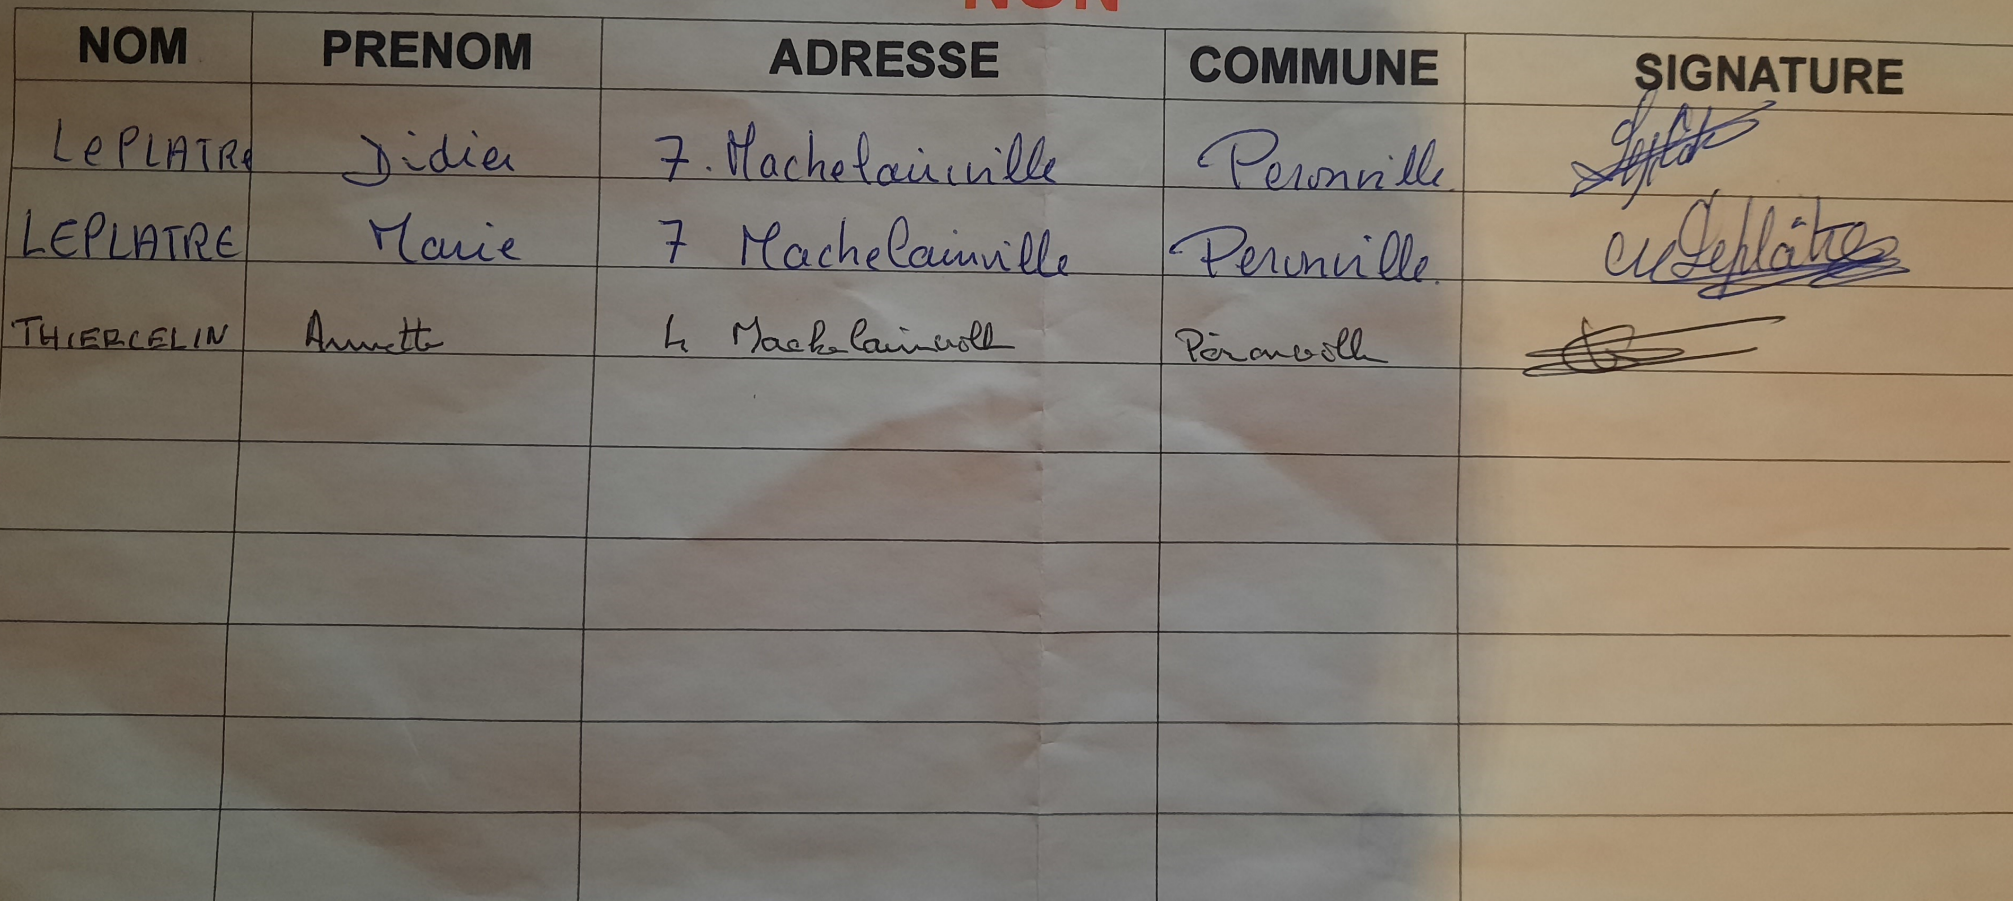 NON
NOM PRENOM ADRESSE COMMUNE SIGNATURE
LePLATRe Didier 7. Machelainville Peronville
LEPLATRE Marie 7 Machelainville Peronville. M Leplâtre
THIERCELIN Annette 4 Machelainville Péronville